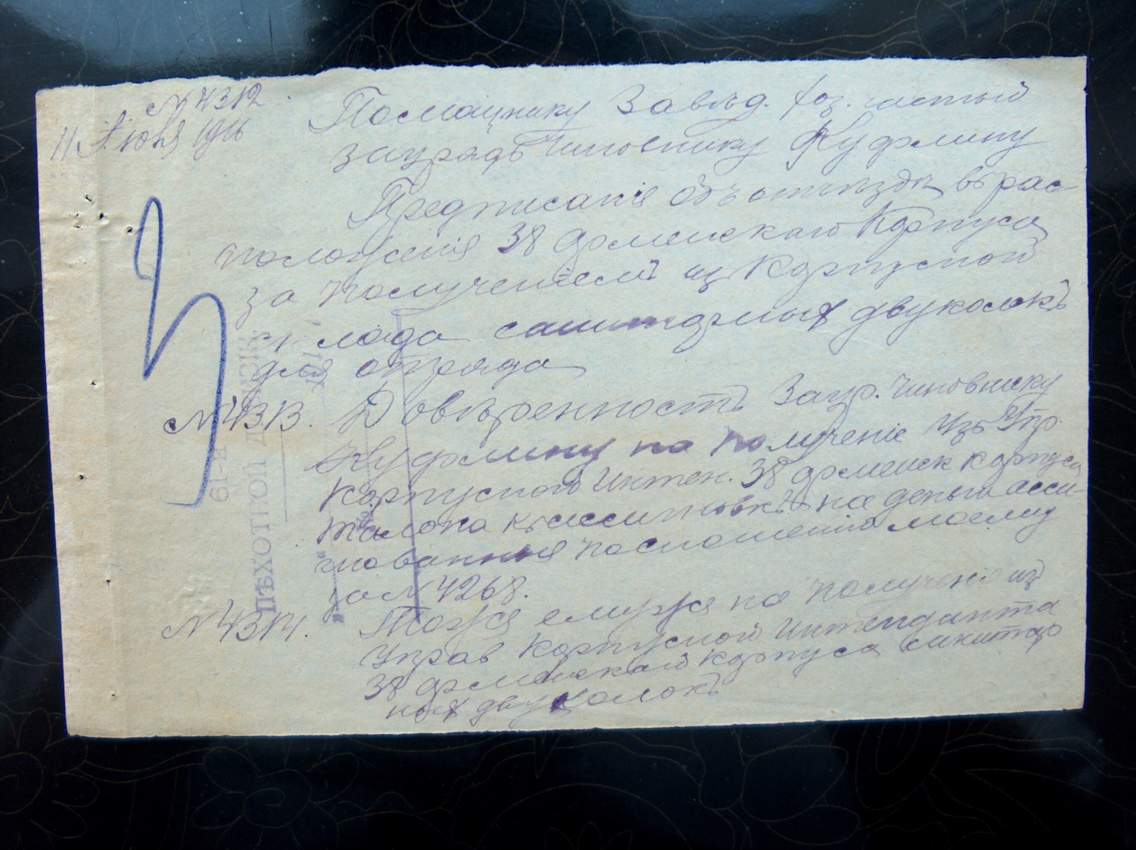 № 4312
11 Июня 1916
Помощнику Завѣд. хоз. частью
заурядъ чиновнику Куфлину
Предписанія объ отъѣздѣ въ рас-
положенія 38 Армейскаго Корпуса
за полученіемъ из Корпусной
склада санитарных двуколокъ
для отряда
№ 4313. Довѣренность Заур. чиновнику
Куфлину на полученіе изъ Упр.
Корпусного Интен. 38 армейск корпуса
талона къ ассигновкѣ на деньги асси-
гнованныя по сношенію моему
за № 4268.
№ 4314. Тоже ему же на полученіе из
Управ Корпусной Интенданта
38 армейскаго корпуса санитар
ных двуколокъ
ПѢХОТНОЙ
61-й